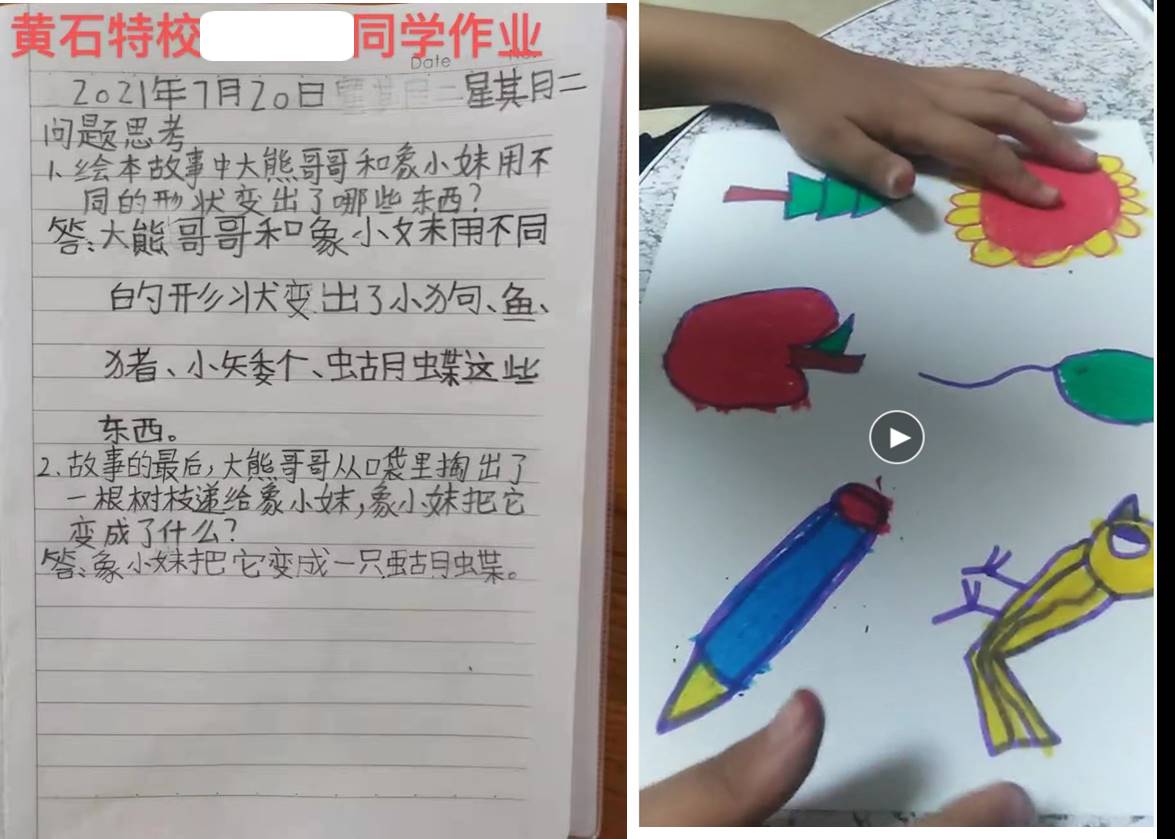 黄石特校 同学作业
Date No.
2021年7月20日 星期二 星期二
问题思考
1. 绘本故事中大熊哥哥和象小妹用不
同的形状变出了哪些东西?
答:大熊哥哥和象小妹用不同
的形状变出了小狗、鱼、
猪、小矮个、蝴蝶这些
东西。
2. 故事的最后,大熊哥哥从口袋里掏出了
一根树枝递给象小妹,象小妹把它
变成了什么?
答:象小妹把它变成一只蝴蝶。